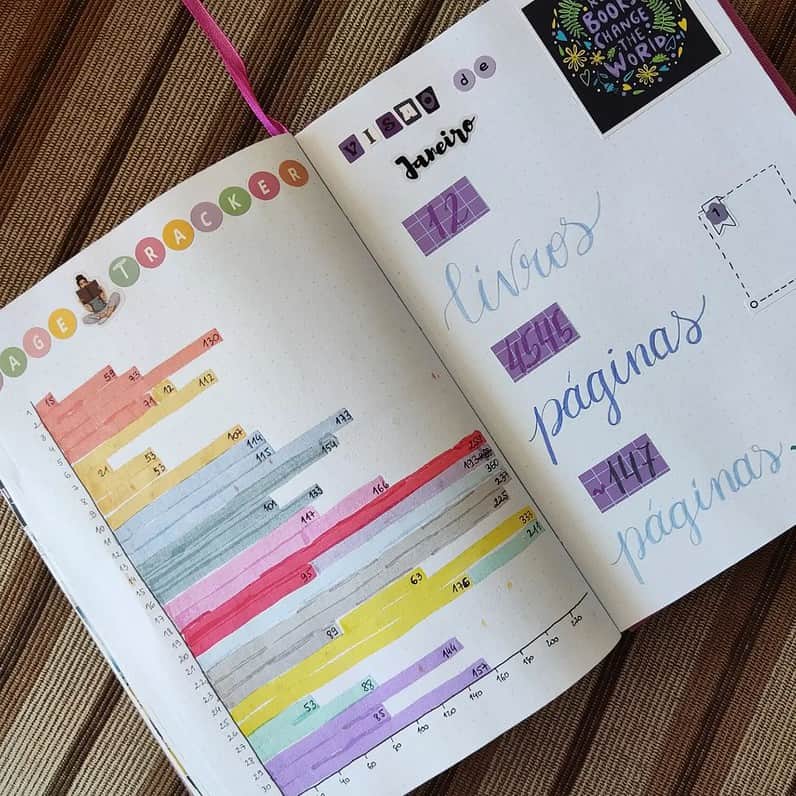 AGE TRACKER
15
57
73
130
71
12
112
21
53
53
107
114
115
173
154
101
133
117
166
95
360
225
89
63
333
176
218
53
88
144
85
157
1
2
4
5
6
7
8
9
10
11
12
14
15
16
17
19
20
21
22
24
25
26
27
28
29
30
40
60
80
100
120
140
160
180
200
220
BOOKS
CHANGE
THE
WORLD
VISÃO de
Janeiro
12
livros
1
4546
páginas
~147
páginas